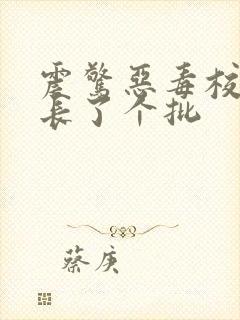 震惊恶毒校
长了个批
蔡庚